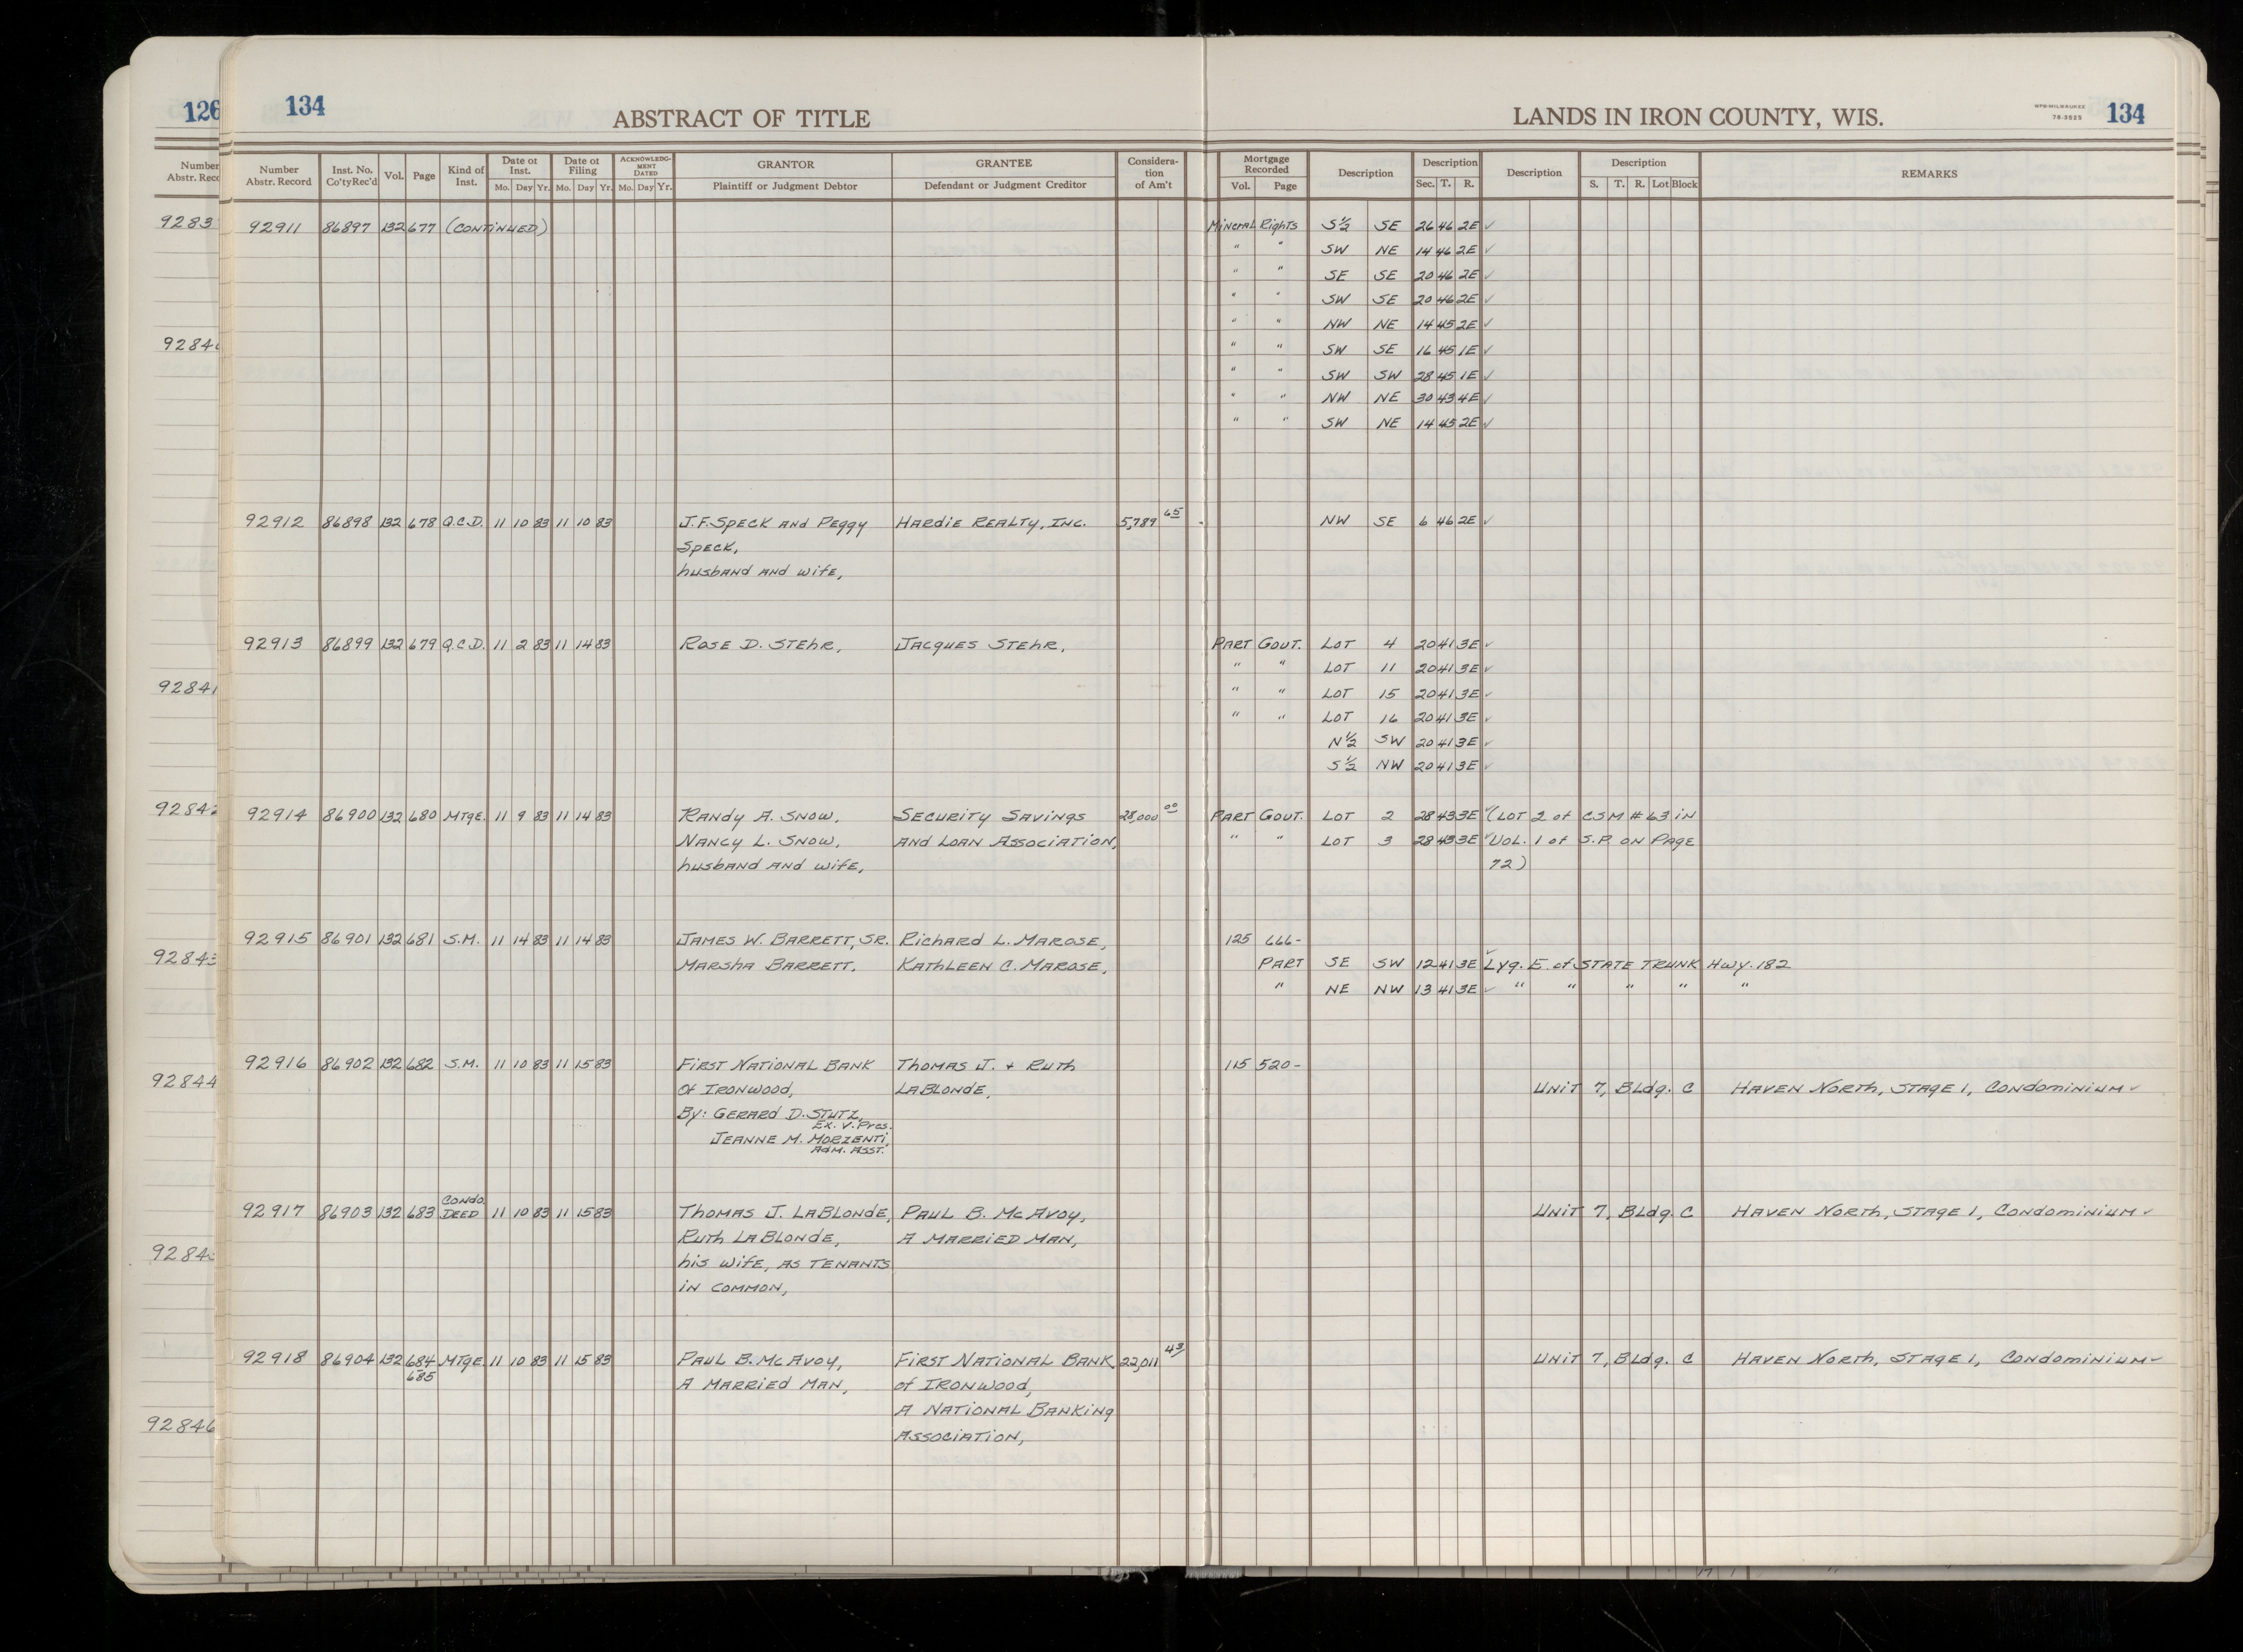 126
134
ABSTRACT OF TITLE
LANDS IN IRON COUNTY, WIS.
WPB-MILWAUKEE
78-3525
134
Number Abstr. Record | Inst. No. Co'tyRec'd | Vol. | Page | Kind of Inst. | Date of Inst. Mo. Day Yr. | Date of Filing Mo. Day Yr. | ACKNOWLEDGMENT DATED Mo. Day Yr. | GRANTOR Plaintiff or Judgment Debtor | GRANTEE Defendant or Judgment Creditor | Consideration of Am't | Mortgage Recorded Vol. Page | Description | Description Sec. T. R. | Description | Description S. T. R. Lot Block | REMARKS
92911 86897 132 677 (CONTINUED) Mineral Rights S½ SE 26 46 2E ✓
" " SW NE 14 46 2E ✓
" " SE SE 20 46 2E ✓
" " SW SE 20 46 2E ✓
" " NW NE 14 45 2E ✓
" " SW SE 16 45 1E ✓
" " SW SW 28 45 1E ✓
" " NW NE 30 43 4E ✓
" " SW NE 14 45 2E ✓
92912 86898 132 678 Q.C.D. 11 10 83 11 10 83 J.F. SPECK AND PEGGY HARDIE REALTY, INC. 5,789 65 NW SE 6 46 2E ✓
SPECK,
husband and wife,
92913 86899 132 679 Q.C.D. 11 2 83 11 14 83 ROSE D. STEHR, JACQUES STEHR, PART GOVT. LOT 4 20 41 3E ✓
" " LOT 11 20 41 3E ✓
" " LOT 15 20 41 3E ✓
" " LOT 16 20 41 3E ✓
N½ SW 20 41 3E ✓
S½ NW 20 41 3E ✓
92914 86900 132 680 MTGE. 11 9 83 11 14 83 RANDY A. SNOW, SECURITY SAVINGS 28,000 00 PART GOVT. LOT 2 28 43 3E ✓ (LOT 2 of CSM #63 IN
NANCY L. SNOW, AND LOAN ASSOCIATION, " " LOT 3 28 43 3E ✓ VOL. 1 of S.P. ON PAGE
husband and wife, 72)
92915 86901 132 681 S.M. 11 14 83 11 14 83 JAMES W. BARRETT, SR. RICHARD L. MAROSE, 125 666-
MARSHA BARRETT, KATHLEEN C. MAROSE, PART SE SW 12 41 3E ✓ Lyg. E. of STATE TRUNK Hwy. 182
" NE NW 13 41 3E ✓ " " " " "
92916 86902 132 682 S.M. 11 10 83 11 15 83 FIRST NATIONAL BANK THOMAS J. + RUTH 115 520-
Of IRONWOOD, LABLONDE, UNIT 7, Bldg. C HAVEN NORTH, STAGE 1, CONDOMINIUM ✓
By: GERARD D. STUTZ,
Ex. V. Pres.
JEANNE M. MORZENTI,
Adm. Asst.
92917 86903 132 683 CONDO DEED 11 10 83 11 15 83 THOMAS J. LABLONDE, PAUL B. McAVOY, UNIT 7, Bldg. C HAVEN NORTH, STAGE 1, CONDOMINIUM ✓
RUTH LABLONDE, A MARRIED MAN,
his wife, AS TENANTS
IN COMMON,
92918 86904 132 684 685 MTGE. 11 10 83 11 15 83 PAUL B. McAVOY, FIRST NATIONAL BANK 22,011 43 UNIT 7, Bldg. C HAVEN NORTH, STAGE 1, CONDOMINIUM ✓
A MARRIED MAN, of IRONWOOD,
A NATIONAL BANKING
ASSOCIATION,
92841
92843
92844
92846